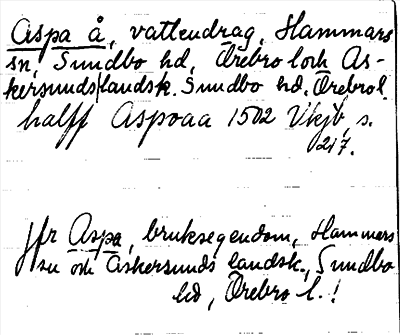 Aspa å, vattendrag, Hammars
sn, Sundbo hd, Örebro l och As-
kersunds landsk. Sundbo hd, Örebro l.
halff Aspoaa 1502 Vkjb, s.
217.
Jfr Aspa, bruksegendom, Hammars
sn och Askersunds landsk., Sundbo
hd, Örebro l.!